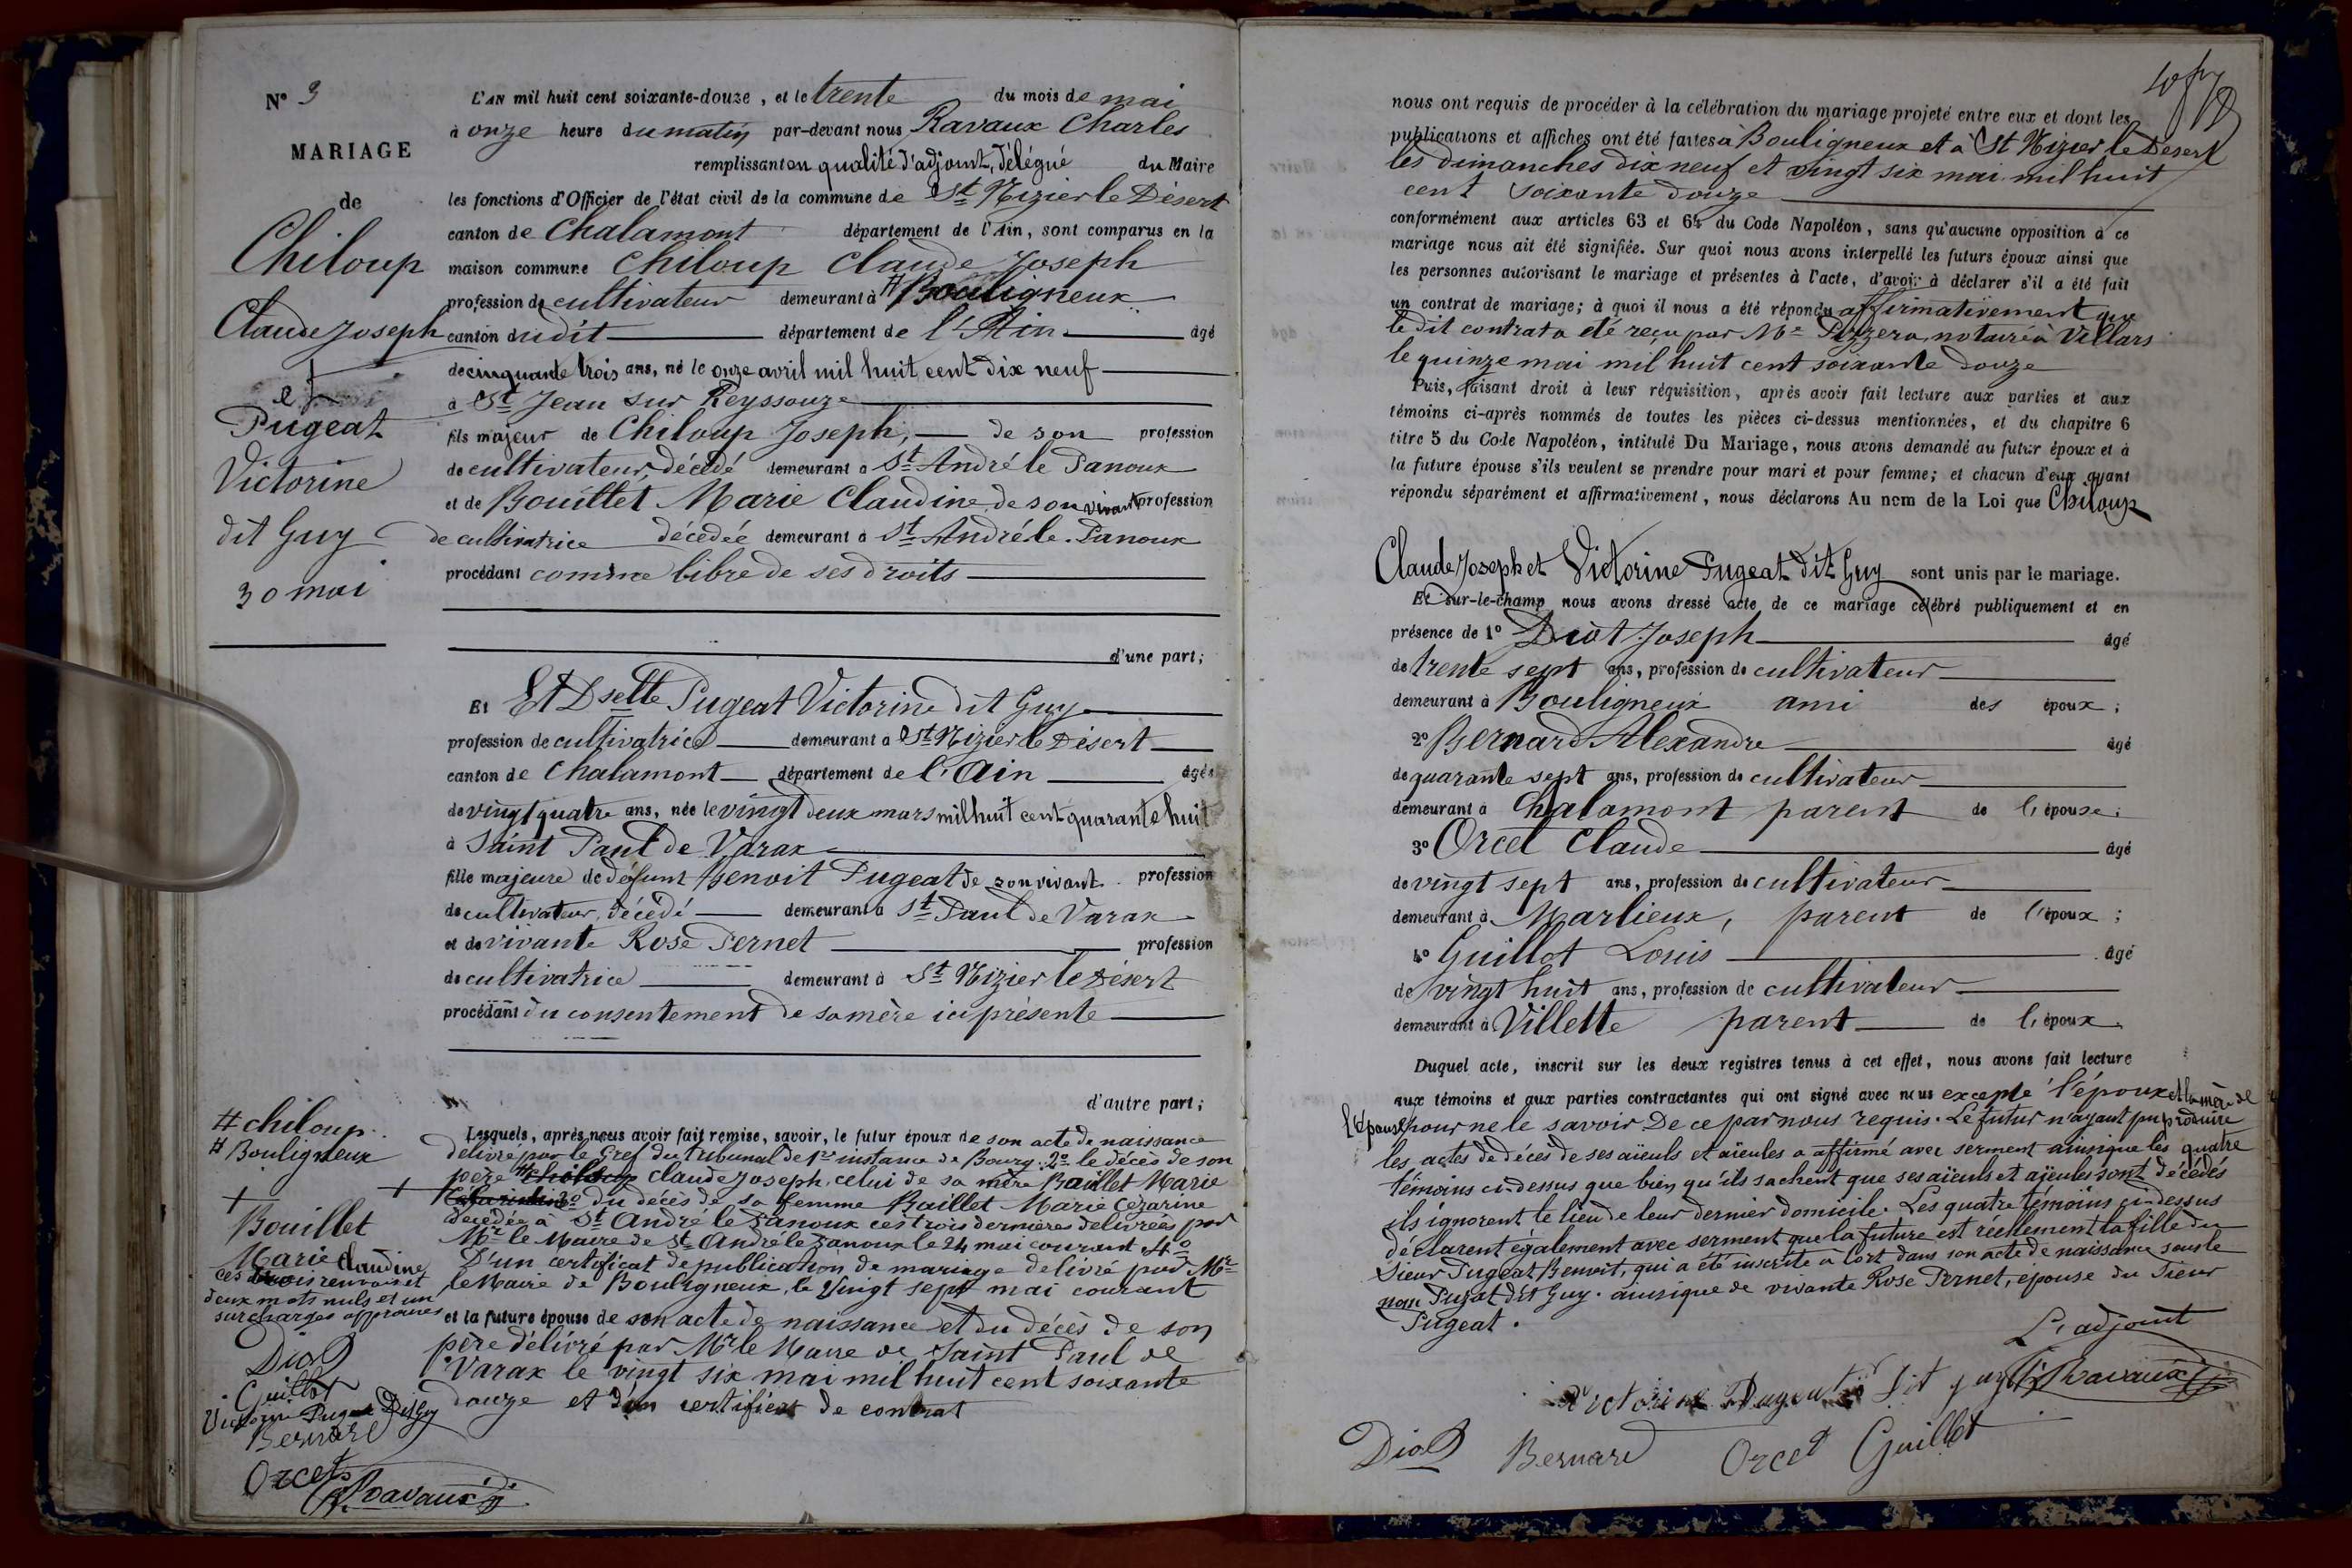 N° 3
MARIAGE
de
Chiloup
Claude Joseph
et
Pugeat
Victorine
dit Guy
30 mai
L'AN mil huit cent soixante-douze, et le trente du mois de mai
à onze heure du matin par-devant nous Ravaux Charles
remplissant en qualité d'adjoint, délégué du Maire
les fonctions d'Officier de l'état civil de la commune de St Nizier le Désert
canton de Chalamont département de l'Ain, sont comparus en la
maison commune Chiloup Claude Joseph
profession de cultivateur demeurant à # Bouligneux
canton du dit département de l'Ain âgé
de cinquante trois ans, né le onze avril mil huit cent dix neuf
à St Jean sur Reyssouze
fils majeur de Chiloup Joseph, de son profession
de cultivateur, décédé demeurant à St André le Panoux
et de Bouillet Marie Claudine de son vivant profession
de cultivatrice décédée demeurant à St André le Panoux
procédant comme libre de ses droits
d'une part;
Et Et Dselle Pugeat Victorine dit Guy
profession de cultivatrice demeurant à St Nizier le Désert
canton de Chalamont département de l'Ain âgée
de vingt quatre ans, née le vingt deux mars mil huit cent quarante huit
à Saint Paul de Varax
fille majeure de défunt Benoit Pugeat de son vivant profession
de cultivateur, décédé demeurant à St Paul de Varax
et de vivante Rose Pernet profession
de cultivatrice demeurant à St Nizier le Désert
procédant du consentement de sa mère ici présente
d'autre part;
Lesquels, après nous avoir fait remise, savoir, le futur époux de son acte de naissance
délivré par le Gref du tribunal de 1re instance de Bourg. 2° le décès de son
père # Claude Joseph, celui de sa mère Baillet Marie
3° du décès de sa femme Baillet Marie Cézarine
décédée à St André le Panoux ces trois dernières délivrées par
Mr le Maire de St André le Panoux le 24 mai courant 4°
D'un certificat de publication de mariage délivré par Mr
le Maire de Bouligneux, le vingt sept mai courant
et la future épouse de son acte de naissance et du décès de son
père délivré par Mr le Maire de Saint Paul de
Varax le vingt six mai mil huit cent soixante
douze et d'un certificat de contrat
# chiloup
# Bouligneux
+
Bouillet
Marie Claudine
ces trois renvois et
deux mots nuls et un
surcharges approuvés
Diot
Guillot
Victorine Pugeat Dit Guy
Bernard
Orcet
Ravaux
nous ont requis de procéder à la célébration du mariage projeté entre eux et dont les
publications et affiches ont été faites à Bouligneux et à St Nizier le Désert
les dimanches dix neuf et vingt six mai mil huit
cent soixante douze
conformément aux articles 63 et 64 du Code Napoléon, sans qu'aucune opposition à ce
mariage nous ait été signifiée. Sur quoi nous avons interpellé les futurs époux ainsi que
les personnes autorisant le mariage et présentes à l'acte, d'avoir à déclarer s'il a été fait
un contrat de mariage; à quoi il nous a été répondu affirmativement que
le dit contrat a été reçu par Me Pizzera, notaire à Villars
le quinze mai mil huit cent soixante douze
Puis, faisant droit à leur réquisition, après avoir fait lecture aux parties et aux
témoins ci-après nommés de toutes les pièces ci-dessus mentionnées, et du chapitre 6
titre 5 du Code Napoléon, intitulé Du Mariage, nous avons demandé au futur époux et à
la future épouse s'ils veulent se prendre pour mari et pour femme; et chacun d'eux ayant
répondu séparément et affirmativement, nous déclarons Au nom de la Loi que Chiloup
Claude Joseph et Victorine Pugeat dit Guy sont unis par le mariage.
Et sur-le-champ nous avons dressé acte de ce mariage célébré publiquement et en
présence de 1° Diot Joseph âgé
de trente sept ans, profession de cultivateur
demeurant à Bouligneux ami des époux;
2° Bernard Alexandre âgé
de quarante sept ans, profession de cultivateur
demeurant à Chalamont parent de l'épouse;
3° Orcet Claude âgé
de vingt sept ans, profession de cultivateur
demeurant à Marlieux, parent de l'époux;
4° Guillot Louis âgé
de vingt huit ans, profession de cultivateur
demeurant à Villette parent de l'époux.
Duquel acte, inscrit sur les deux registres tenus à cet effet, nous avons fait lecture
aux témoins et aux parties contractantes qui ont signé avec nous excepté l'époux et la mère de
l'épouse pour ne le savoir De ce par nous requis. Le futur n'ayant pu produire
les actes de décès de ses aïeuls et aïeules a affirmé avec serment ainsi que les quatre
témoins ci-dessus que bien qu'ils sachent que ses aïeuls et aïeules sont décédés
ils ignorent le lieu de leur dernier domicile. Les quatre témoins ci-dessus
déclarent également avec serment que la future est réellement la fille du
Sieur Pugeat Benoit, qui a été inscrite à tort dans son acte de naissance sous le
nom Pugeat dit Guy. ainsi que de vivante Rose Pernet, épouse du Sieur
Pugeat.
L'adjoint
Victorine Pugeat Dit guy Ravaux
Diot Bernard Orcet Guillot